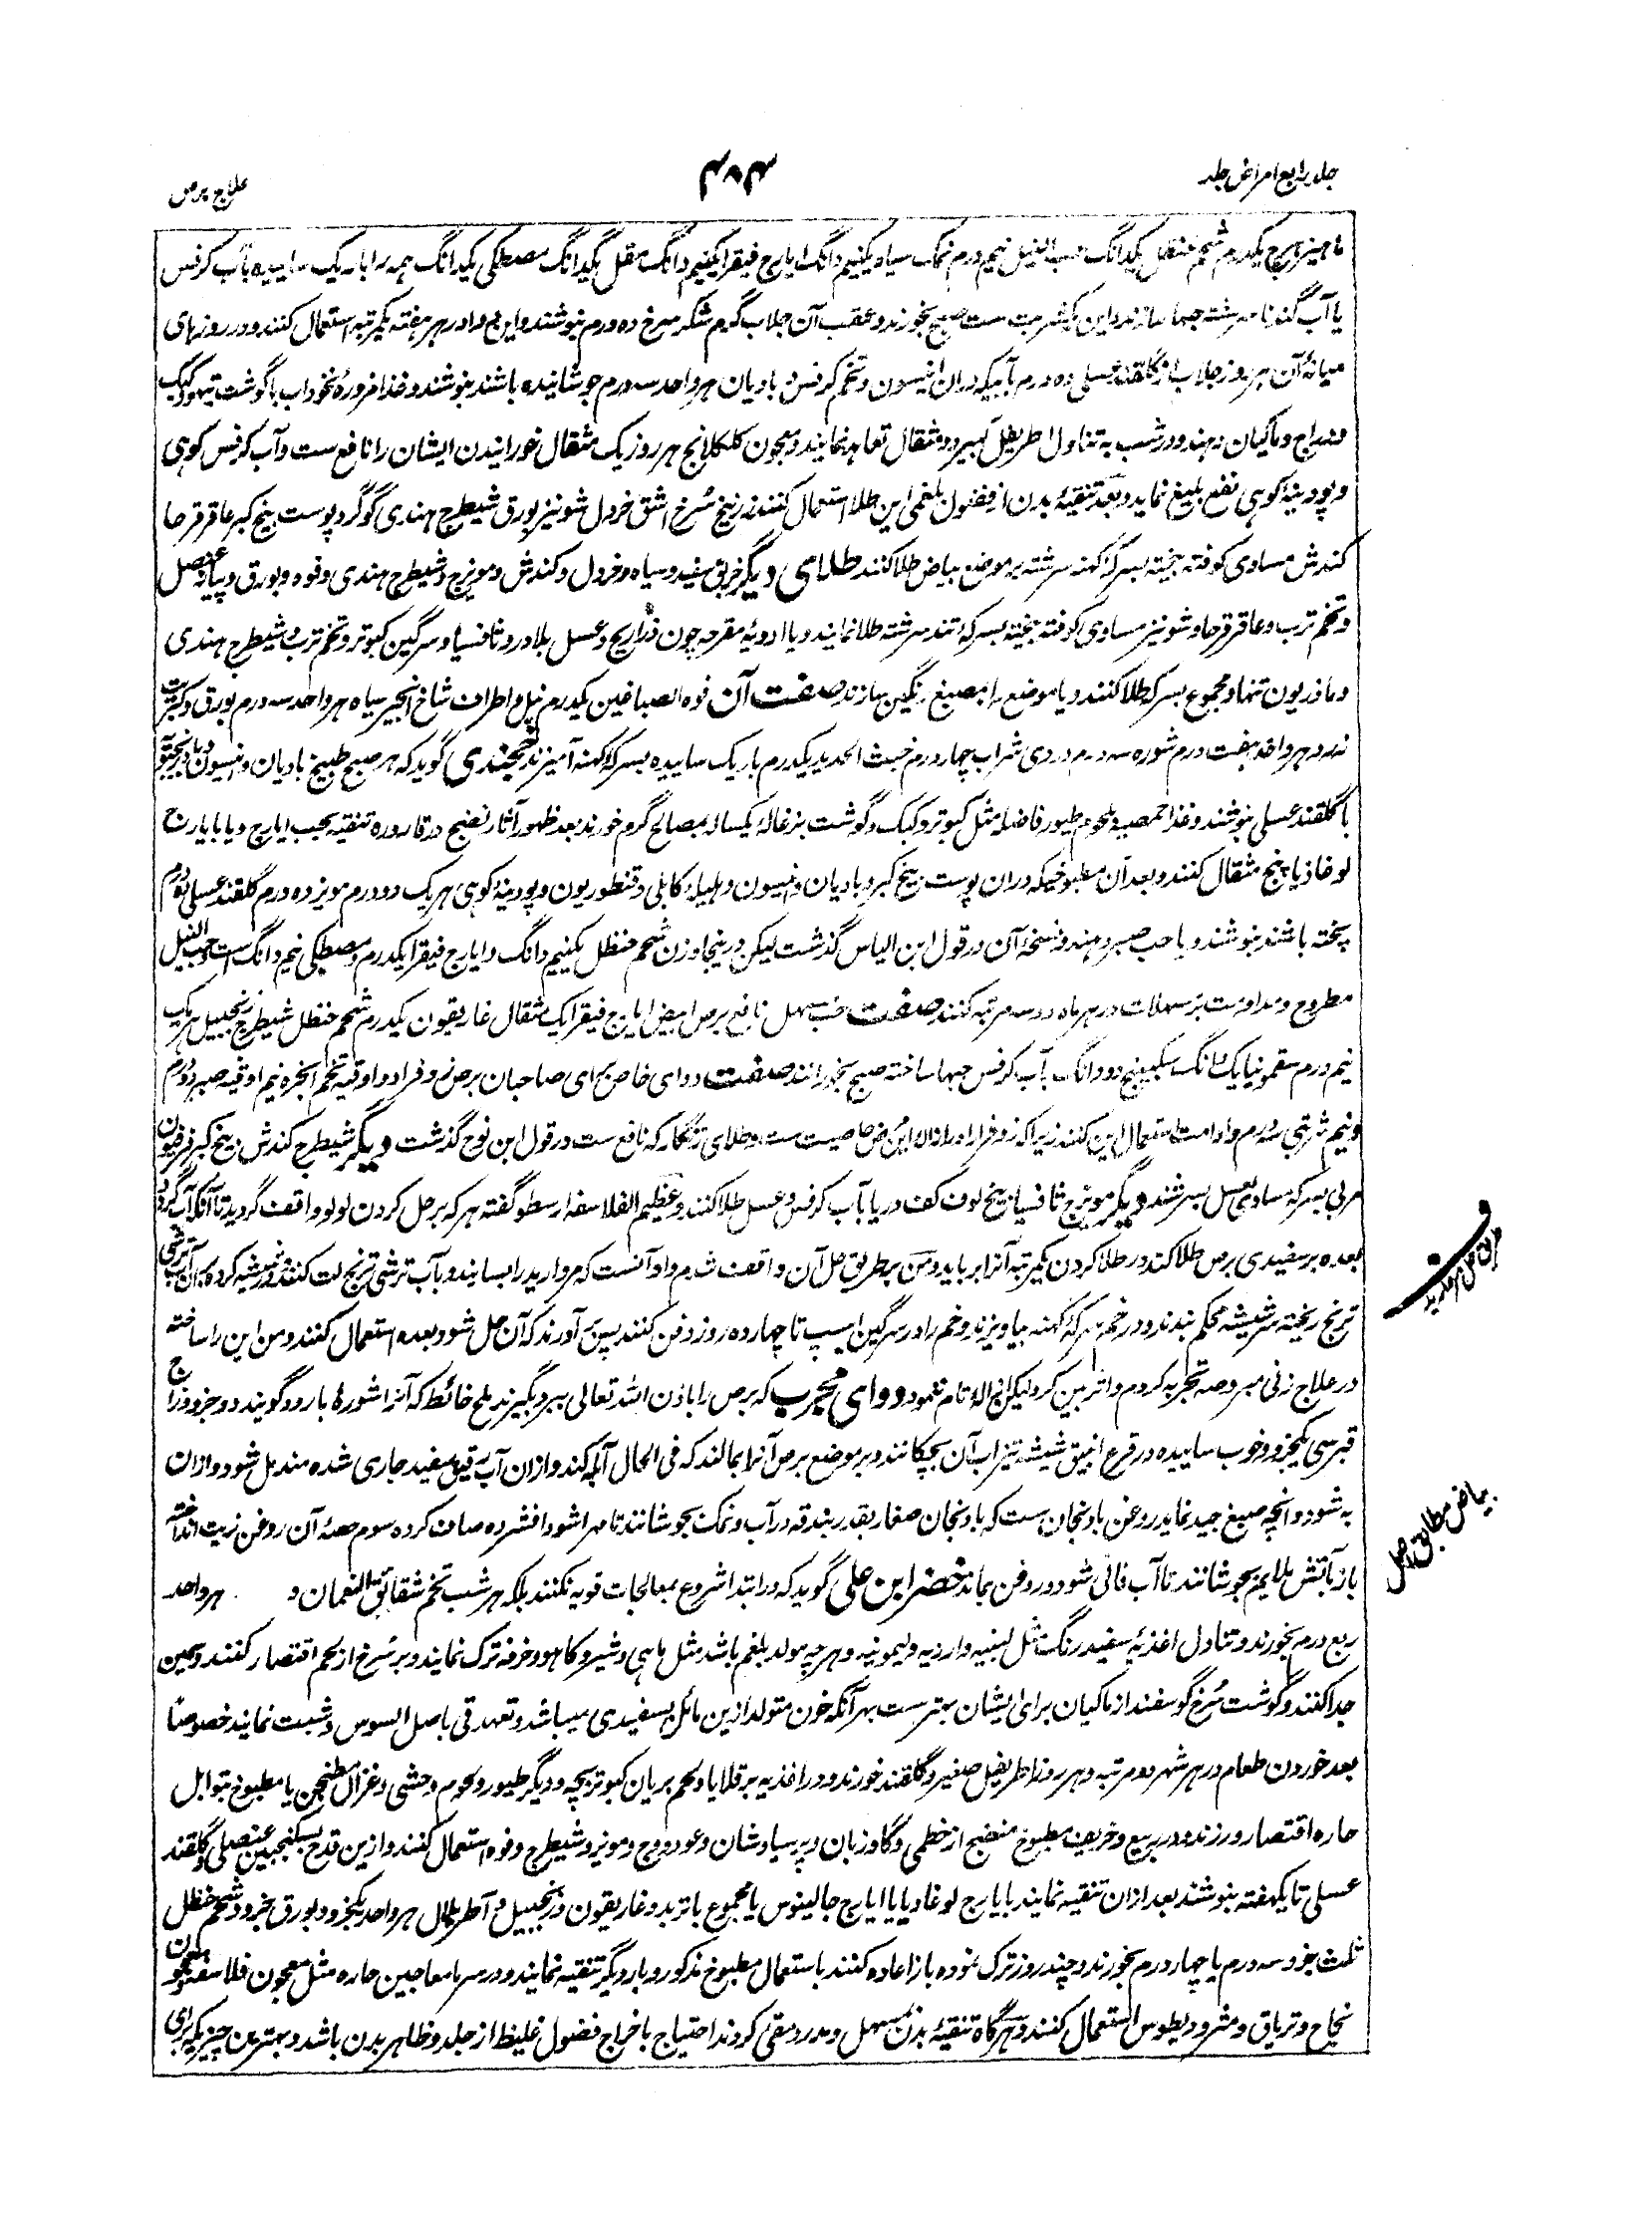 جلد رابع امراض جلد
علاج برص
ماهیزهرج یکدرم شحم حنظل یکدانگ حب النیل نیم درم نمک سیاه یکنیم دانگ ایارج فیقرا یکنیم دانگ مقل یکدانگ مصطکی یکدانگ همه را باریک ساییده بآب کرفس
یا آب گندنا سرشته حبها سازند و این یکشربت ست صبح بخورند و عقب آن جلاب گرم شکر سرخ ده درم بنوشند و این دوا در هر هفته یکمرتبه استعمال کنند و در روزهای
میانهٔ آن هر روز جلاب از گلقند عسلی ده درم بآبیکه دران انیسون و تخم کرفس و بادیان هر واحد سه درم جوشانیده باشند بنوشند و غذا مزورهٔ نخوداب با گوشت تیهو و کبک
و دراج و ماکیان دهند و در شب به تناول اطریفل کبیر دو مثقال تعاهد نمایند و معجون کلکلانج هر روز یک مثقال خورانیدن ایشان را نافع ست و آب کرفس کوهی
و پودینهٔ کوهی نفع بلیغ نماید و بعد تنقیهٔ بدن از فضول بلغمی این طلا استعمال کنند زرنیخ سُرخ اشق خردل شونیز بورق شیطرج هندی گوگرد پوست بیخ کبر عاقرقرحا
کندش مساوی کوفته بیخته بسرکهٔ کهنه سرشته بر موضع بیاض طلا کنند طلای دیگر خربق سفید و سیاه و خردل و کندش و مویزج و شیطرج هندی و فوه و بورق و پیاز عنصل
و تخم ترب و عاقرقرحا و شونیز مساوی کوفته بیخته بسرکهٔ تند سرشته طلا نمایند و یا ادویهٔ مقرحه چون ذراریح و عسل بلادر و ثافسیا و سرگین کبوتر و تخم ترب و شیطرج هندی
و ماذریون تنها و مجموع بسرکه طلا کنند و یا موضع را بصبغ رنگین سازند صفت آن فوه الصباغین یکدرم نیل و اطراف شاخ انجیر سیاه هر واحد سه درم بورق و کبریت
زرد هر واحد هفت درم شوره سه درم دردی شراب چهار درم خبث الحدید یکدرم باریک ساییده بسرکهٔ کهنه آمیزند خجندی گوید که هر صبح طبیخ بادیان و انیسون و بادرنجبویه
با گلقند عسلی بنوشند و غذا حمصیه و لحوم طیور فاضله مثل کبوتر و کبک و گوشت بزغالهٔ یکساله بمصالح گرم خورند بعد ظهور آثار نضج در قاروره تنقیه بحب ایارج و یا بایارج
لوغاذیا پنج مثقال کنند و بعد آن مطبوخیکه دران پوست بیخ کبر و بادیان و انیسون و هلیلهٔ کابلی و قنطوریون و پودینهٔ کوهی هر یک دو درم مویز ده درم گلقند عسلی نه درم
پخته باشند بنوشند و یا حب صبر دهند و نسخهٔ آن در قول ابن الیاس گذشت لیکن درینجا وزن شحم حنظل یکنیم دانگ و ایارج فیقرا یکدرم و مصطکی نیم دانگ است و حب النیل
مطروح و مداومت بر مسهلات در هر ماه دو سه مرتبه کنند صفت حب مسهل نافع برص ابیض ایارج فیقرا یک مثقال غاریقون یکدرم شحم حنظل شیطرج زنجبیل هر یک
نیم درم سقمونیا یک دانگ سکبینج دو دانگ بآب کرفس حبها ساخته صبح بخورانند صفت دوای خاص برای صاحبان برص زوفرا دو اوقیه تخم انجره نیم اوقیه صبر دو درم
و نیم شربتی سه درم و ادامت استعمال این کنند زیرا که زوفرا را در ازالهٔ این مرض خاصیت ست و طلای زنگار که نافع ست در قول ابن نوح گذشت دیگر شیطرج کندش بیخ کبر فرفیون
مربی بسرکه مساوی بعسل بسرشند دیگر مویزج ثافسیا بیخ لوف کف دریا بآب کرفس و عسل طلا کنند و عظیم الفلاسفه ارسطو گفته هر که بر حل کردن لولو واقف گردید تا آنکه آب گردد
بعده بر سفیدی برص طلا کند در طلا کردن یکمرتبه آنرا برباید و من بر طریق حل آن واقف شدم و او آنست که مروارید را بسایند و بآب ترشی ترنج لت کنند و در شیشه کرده بر آن آب ترشی
ترنج ریخته سر شیشه محکم بندند و در خم سرکهٔ کهنه بیاویزند و خم را در سرگین اسپ تا چهارده روز دفن کنند پس برآورند که آن حل شود بعده استعمال کنند و من این را ساخته
در علاج زنی مبروصه تجربه کردم و اثر بین کرد لیکن ازاله تام ننمود دوای مجرب که برص را باذن الله تعالی ببرد بگیرند ملح حائط که آنرا شورهٔ بارود گویند دو جزو و زاج
قبرسی یکجزو و خوب ساییده در قرع انبیق شیشه تیزاب آن بچکانند و بر موضع برص آنرا بمالند که فی الحال آبله کند و ازان آب رقیق سفید جاری شده مندمل شود و ازان
به شود و انچه صبغ جید نماید روغن بادنجان ست که بادنجان صغار بقدر بندقه در آب و نمک بجوشانند تا مهرا شود افشرده صاف کرده سوم حصهٔ آن روغن زیت انداخته
باز بآتش ملایم بجوشانند تا آب فانی شود و روغن بماند خضر ابن علی گوید که در ابتدا شروع بمعالجات قویه نکنند بلکه هر شب تخم شقائق النعمان و هر واحد
ربع درم بخورند و تناول اغذیهٔ سفید رنگ مثل لبنیه و ارزیه و لیمونیه و هرچه مولد بلغم باشد مثل ماهی و شیر و کاهو و خرفه ترک نمایند و بر سُرخ از لحم اقتصار کنند و سمین
جدا کنند و گوشت سُرخ گوسفند از ماکیان برای ایشان بهترست بهر آنکه خون متولد ازین مائل بسفیدی میباشد و تعهد قی باصل السوس و شبت نمایند خصوصاً
بعد خوردن طعام در هر شهر دو مرتبه و هر روز اطریفل صغیر و گلقند خورند و در اغذیه بر قلایا و لحم بریان کبوتر بچه و دیگر طیور و لحوم وحشی و غزال مطنجن یا مطبوخ بتوابل
حاره اقتصار ورزند و در ربیع و خریف مطبوخ منضج از خطمی و گاوزبان و پرسیاوشان و عود و وج و مویز و شیطرج و فوه استعمال کنند و ازین قدح بسکنجبین عنصلی و گلقند
عسلی تا یکهفته بنوشند بعد ازان تنقیه نمایند بایارج لوغاذیا یا ایارج جالینوس یا مجموع با تربد و غاریقون و زنجبیل و آطریلال هر واحد یکجزو و بورق جزو و شحم حنظل
ثلث جزو سه درم یا چهار درم بخورند و چند روز ترک نموده باز اعاده کنند باستعمال مطبوخ مذکور و بار دیگر تنقیه نمایند و در سرما معاجین حاره مثل معجون فلاسفه و معجون
نجاح و تریاق و مثرودیطوس استعمال کنند و هرگاه تنقیهٔ بدن بمسهل و مدر و مقئ کردند احتیاج باخراج فضول غلیظ از جلد و ظاهر بدن باشد و بهترین چیزیکه برای
بیاض مطابق اصل